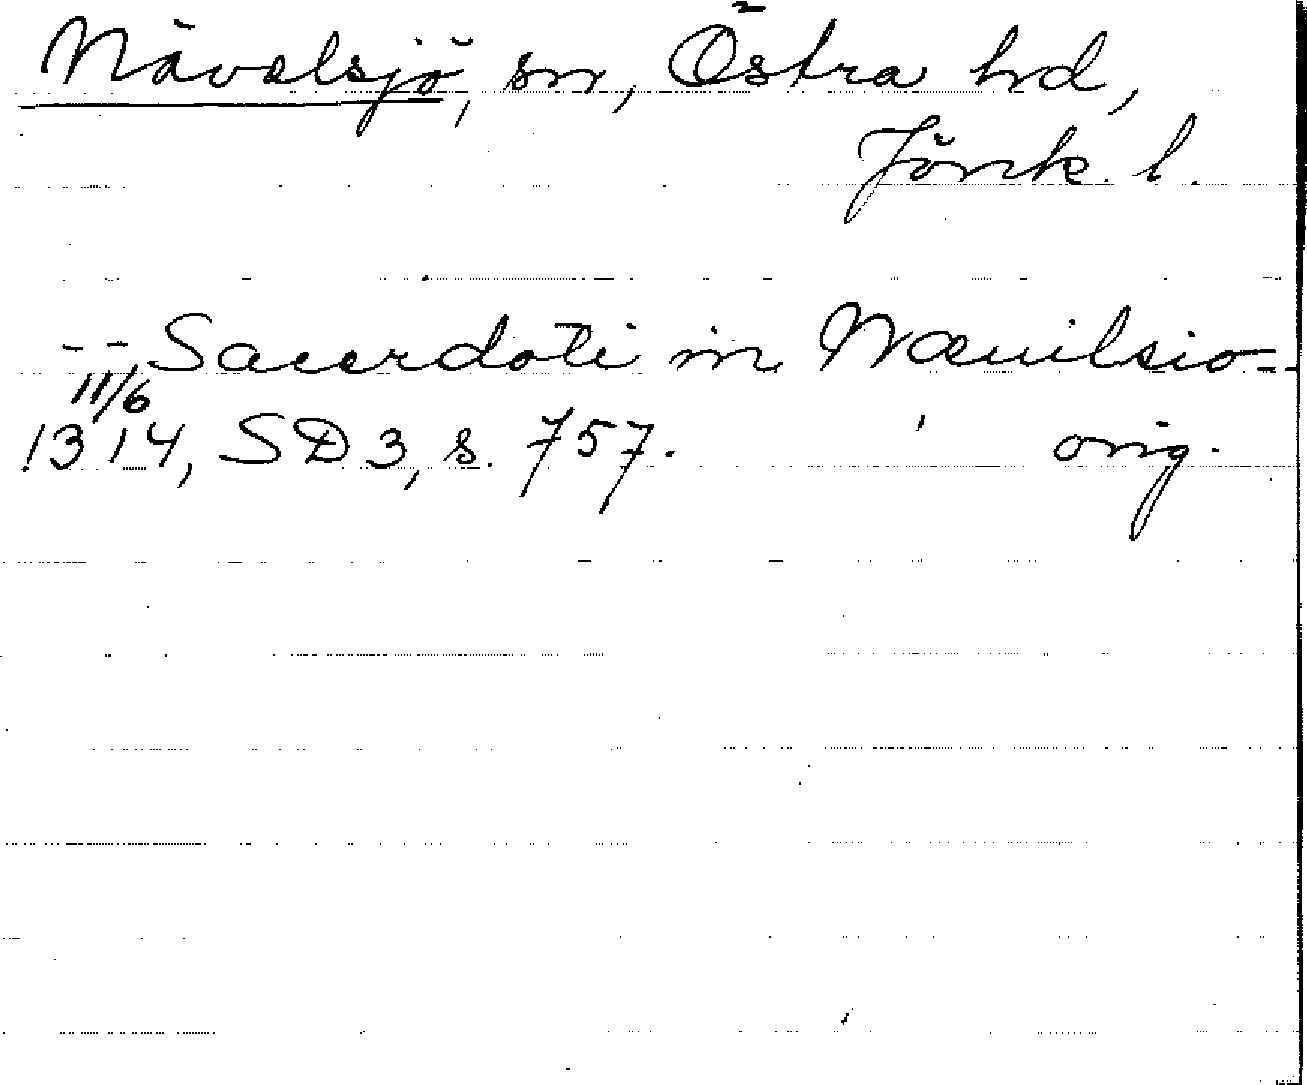 Nävelsjö, sn, Östra hd,
Jönk. l.
-- Sacerdoti in Næuilsio--
11/6
1314, SD 3, s. 757. orig.